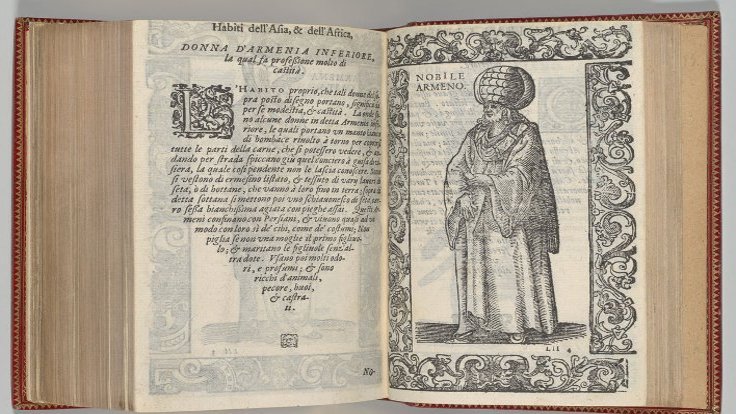 Habiti dell'Asia, & dell'Africa,
DONNA D'ARMENIA INFERIORE,
la qual fa professione molto di
castità.
L'HABITO proprio, che tali donne del so
pra posto disegno portano, significa in
per se modestia, & castità. La onde so
no alcune donne in detta Armenia infe
riore, le quali portano un manto bianco
di bombace rivolto à torno per coprire
tutte le parti della carne, che si potessero vedere, & an
dando per strada spiccano giù quel conciero à guisa di
siera, la quale così pendente non le lascia conoscere. Sono
si vestono di ermesino listato, & tessuto di varij lavori di
seta, ò di bottane, che vanno à loro fino in terra; sopra
detta sottana si mettono poi uno schiavonesco di seta, ov
ro sessa bianchissima agiata con pieghe assai. Questi Ar
meni confinano con Persiani, & vivono quasi ad un
modo con loro sì de' cibi, come de' costumi; Non
piglia se non una moglie il primo figliuo
lo; & maritano le figliuole senz'al
tra dote. Usano poi molti odo
ri, e profumi; & sono
ricchi d'animali,
pecore, buoi,
& castra-
ti.
No-
NOBILE
ARMENO.
LII 4